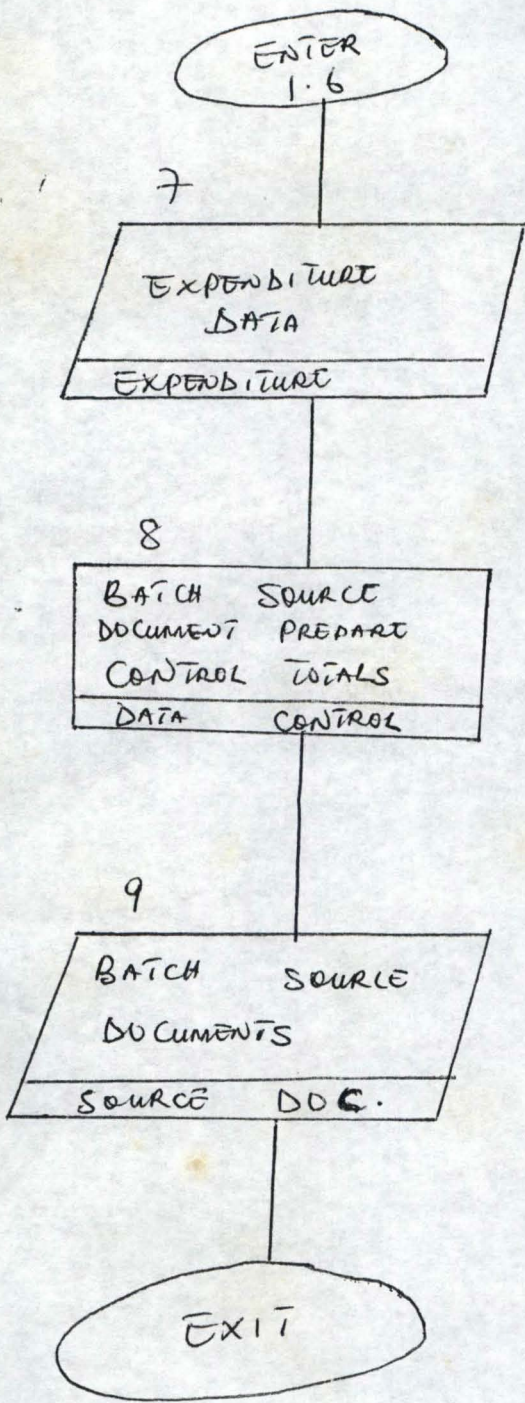 ENTER
1.6
7
EXPENDITURE
DATA
EXPENDITURE
8
BATCH SOURCE
DOCUMENT PREPARE
CONTROL TOTALS
DATA CONTROL
9
BATCH SOURCE
DOCUMENTS
SOURCE DOC.
EXIT